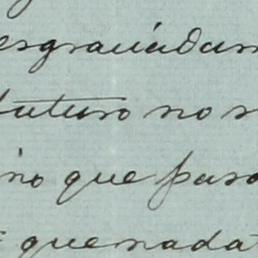 esgraciadam
futuro no s
no que para
que nada